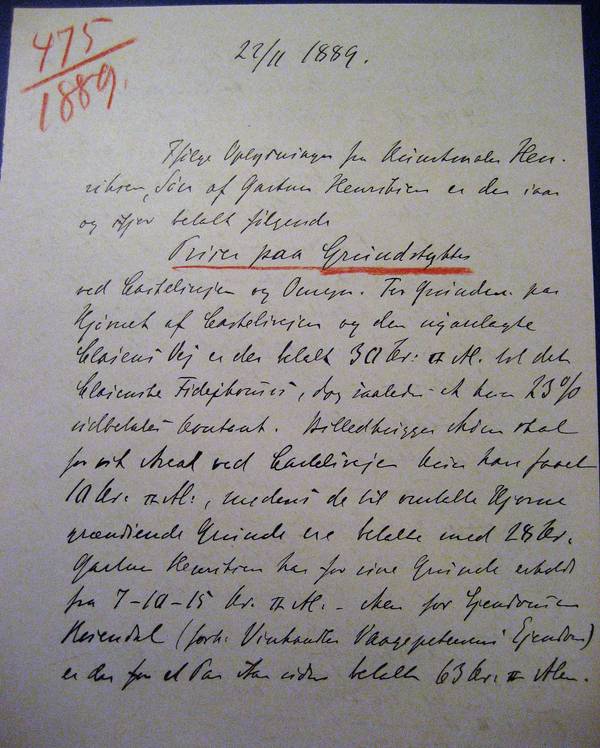 475
1889.
22/11 1889.
Ifølge Oplysninger fra Kunstmaler Hen-
riksen, Søn af Gartner Henriksen er der iaar
og ifjor betalt følgende
Priser paa Grundstykker
ved Castelsvejen og Omegn. For Grunden paa
Hjørnet af Castelsvejen og den nyanlagte
Clasens Vej er der betalt 30 Kr. □ Al. til det
Classenske Fideikommis, dog saaledes at kun 25%
udbetales contant. Billedhugger Stein skal
for sit Areal ved Castelsvejen kun have faaet
10 Kr. □ Al., medens de til omtalte Hjørne
grændsende Grunde ere betalte med 28 Kr.
Gartner Henriksen har for sine Grunde erholdt
fra 7-10-15 Kr. □ Al. - Men for Ejendommen
Rosendal (forh. Vinhandler Waagepetersens Ejendom)
er der for et Par Aar siden betalt 63 Kr. □ Alen.